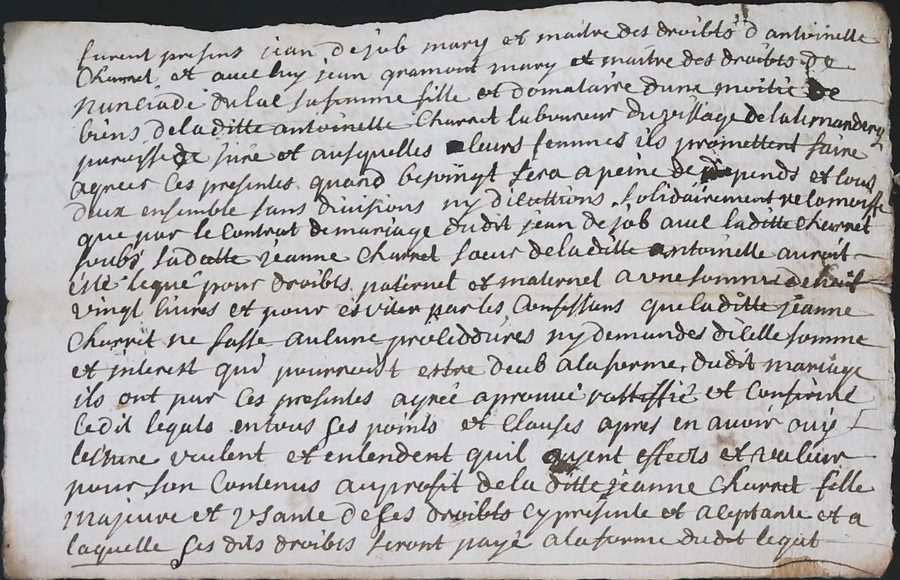 furent presens jean dejob mary et maitre des droibts d antoinelle
Charret et avec luy jean gramont mary et maitre des droibts de
Nunciade dulac sa femme fille et donataire dune moitié de
biens deladitte antoinelle Charret laboureur du village de
paroisse de et ausquelles leurs femmes ils promettent faire
agreer ces presentes quand besoingt sera a peine de depends et tous
deux ensemble sans divisions ny solidairement
que par le Contrat de mariage dudit jean dejob avec laditte Charret
soubs jeanne Charret soeur deladitte antoinelle auroit
esté legué pour droibts paternel et maternel a une somme de
vingt livres et pour esviter par les que laditte jeanne
Charret ne fasse aulcune proceddures ny demandes dicelle somme
et jnterest qui pourroist estre deub alaforme dudit mariage
ils ont par ces presentes agreé aprouvé rattiffié et
ledit legats en tous ses points et Clauses apres en avoir ouy
lecture veulent et entendent quil ayent effects et valeur
pour son Contenus au profit dela ditte jeanne Charret fille
majeure et usante de ses droibts cy presente et aceptante et a
laquelle ses dits droibts seront payé alaforme dudit legat